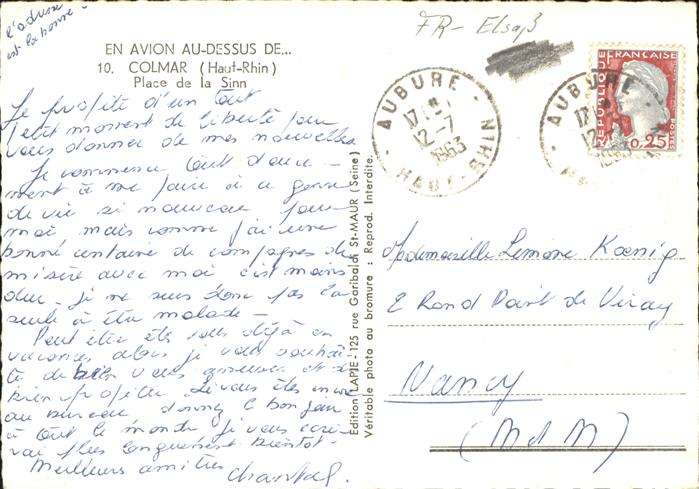 l'adresse
est la bonne
FR- Elsaß
EN AVION AU-DESSUS DE...
10. COLMAR (Haut-Rhin)
Place de la Sinn
Je profite d'un tout
petit moment de liberté pour
vous donner de mes nouvelles
Je commence tout douce-
ment à me faire à ce genre
de vie si nouveau pour
moi mais comme j'ai une
bonne centaine de compagnes de
misère avec moi c'est moins
dur - je ne suis donc pas la
seule à être malade -
Peut être êtes vous déjà en
vacances alors je vous souhai-
te de bien vous amuser et d
bien profiter si vous êtes encore
au bureau donnez le bonjour
à tout le monde je vous écri-
rai plus longuement bientôt -
Meilleures amitiés
Chantal.
Edition LAPIE - 125 rue Garibaldi St-MAUR (Seine)
Véritable photo au bromure : Reprod. Interdite.
AUBURE
17 H
12-7
1963
HAUT-RHIN
AUBURE
17 H
12
1963
REPUBLIQUE FRANÇAISE
POSTES
0,25
Mademoiselle Lemoine Kœnig
2 Rond Point de Viray
Nancy
(M et M)